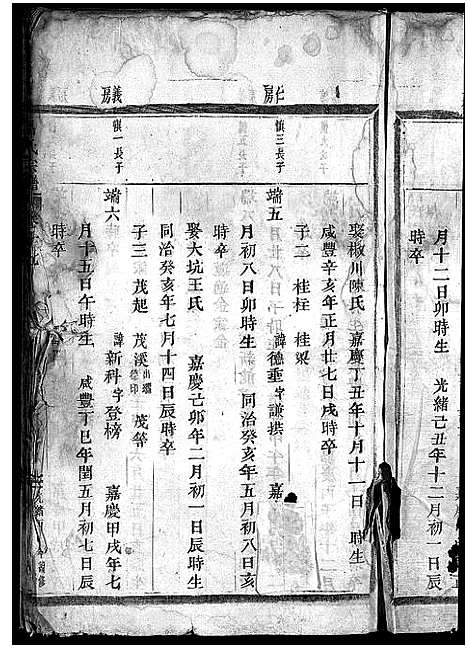 月十二日卯時生 光緒己丑年十二月初一日辰
時卒
娶椒川陳氏 嘉慶丁丑年十月十一日 時生
咸豐辛亥年正月廿七日戌時卒
子二 桂枉 桂梁
仁房
慎三長子
端五 諱德垂字謙拱 嘉
月初八日卯時生 同治癸亥年五月初八日亥
時卒
娶大坑王氏 嘉慶己卯年二月初一日辰時生
同治癸亥年七月十四日辰時卒
子三 茂起 茂溪 茂等
義房
慎一長子
端六 諱新科字登榜 嘉慶甲戌年七
月十五日午時生 咸豐丁巳年閏五月初七日辰
時卒